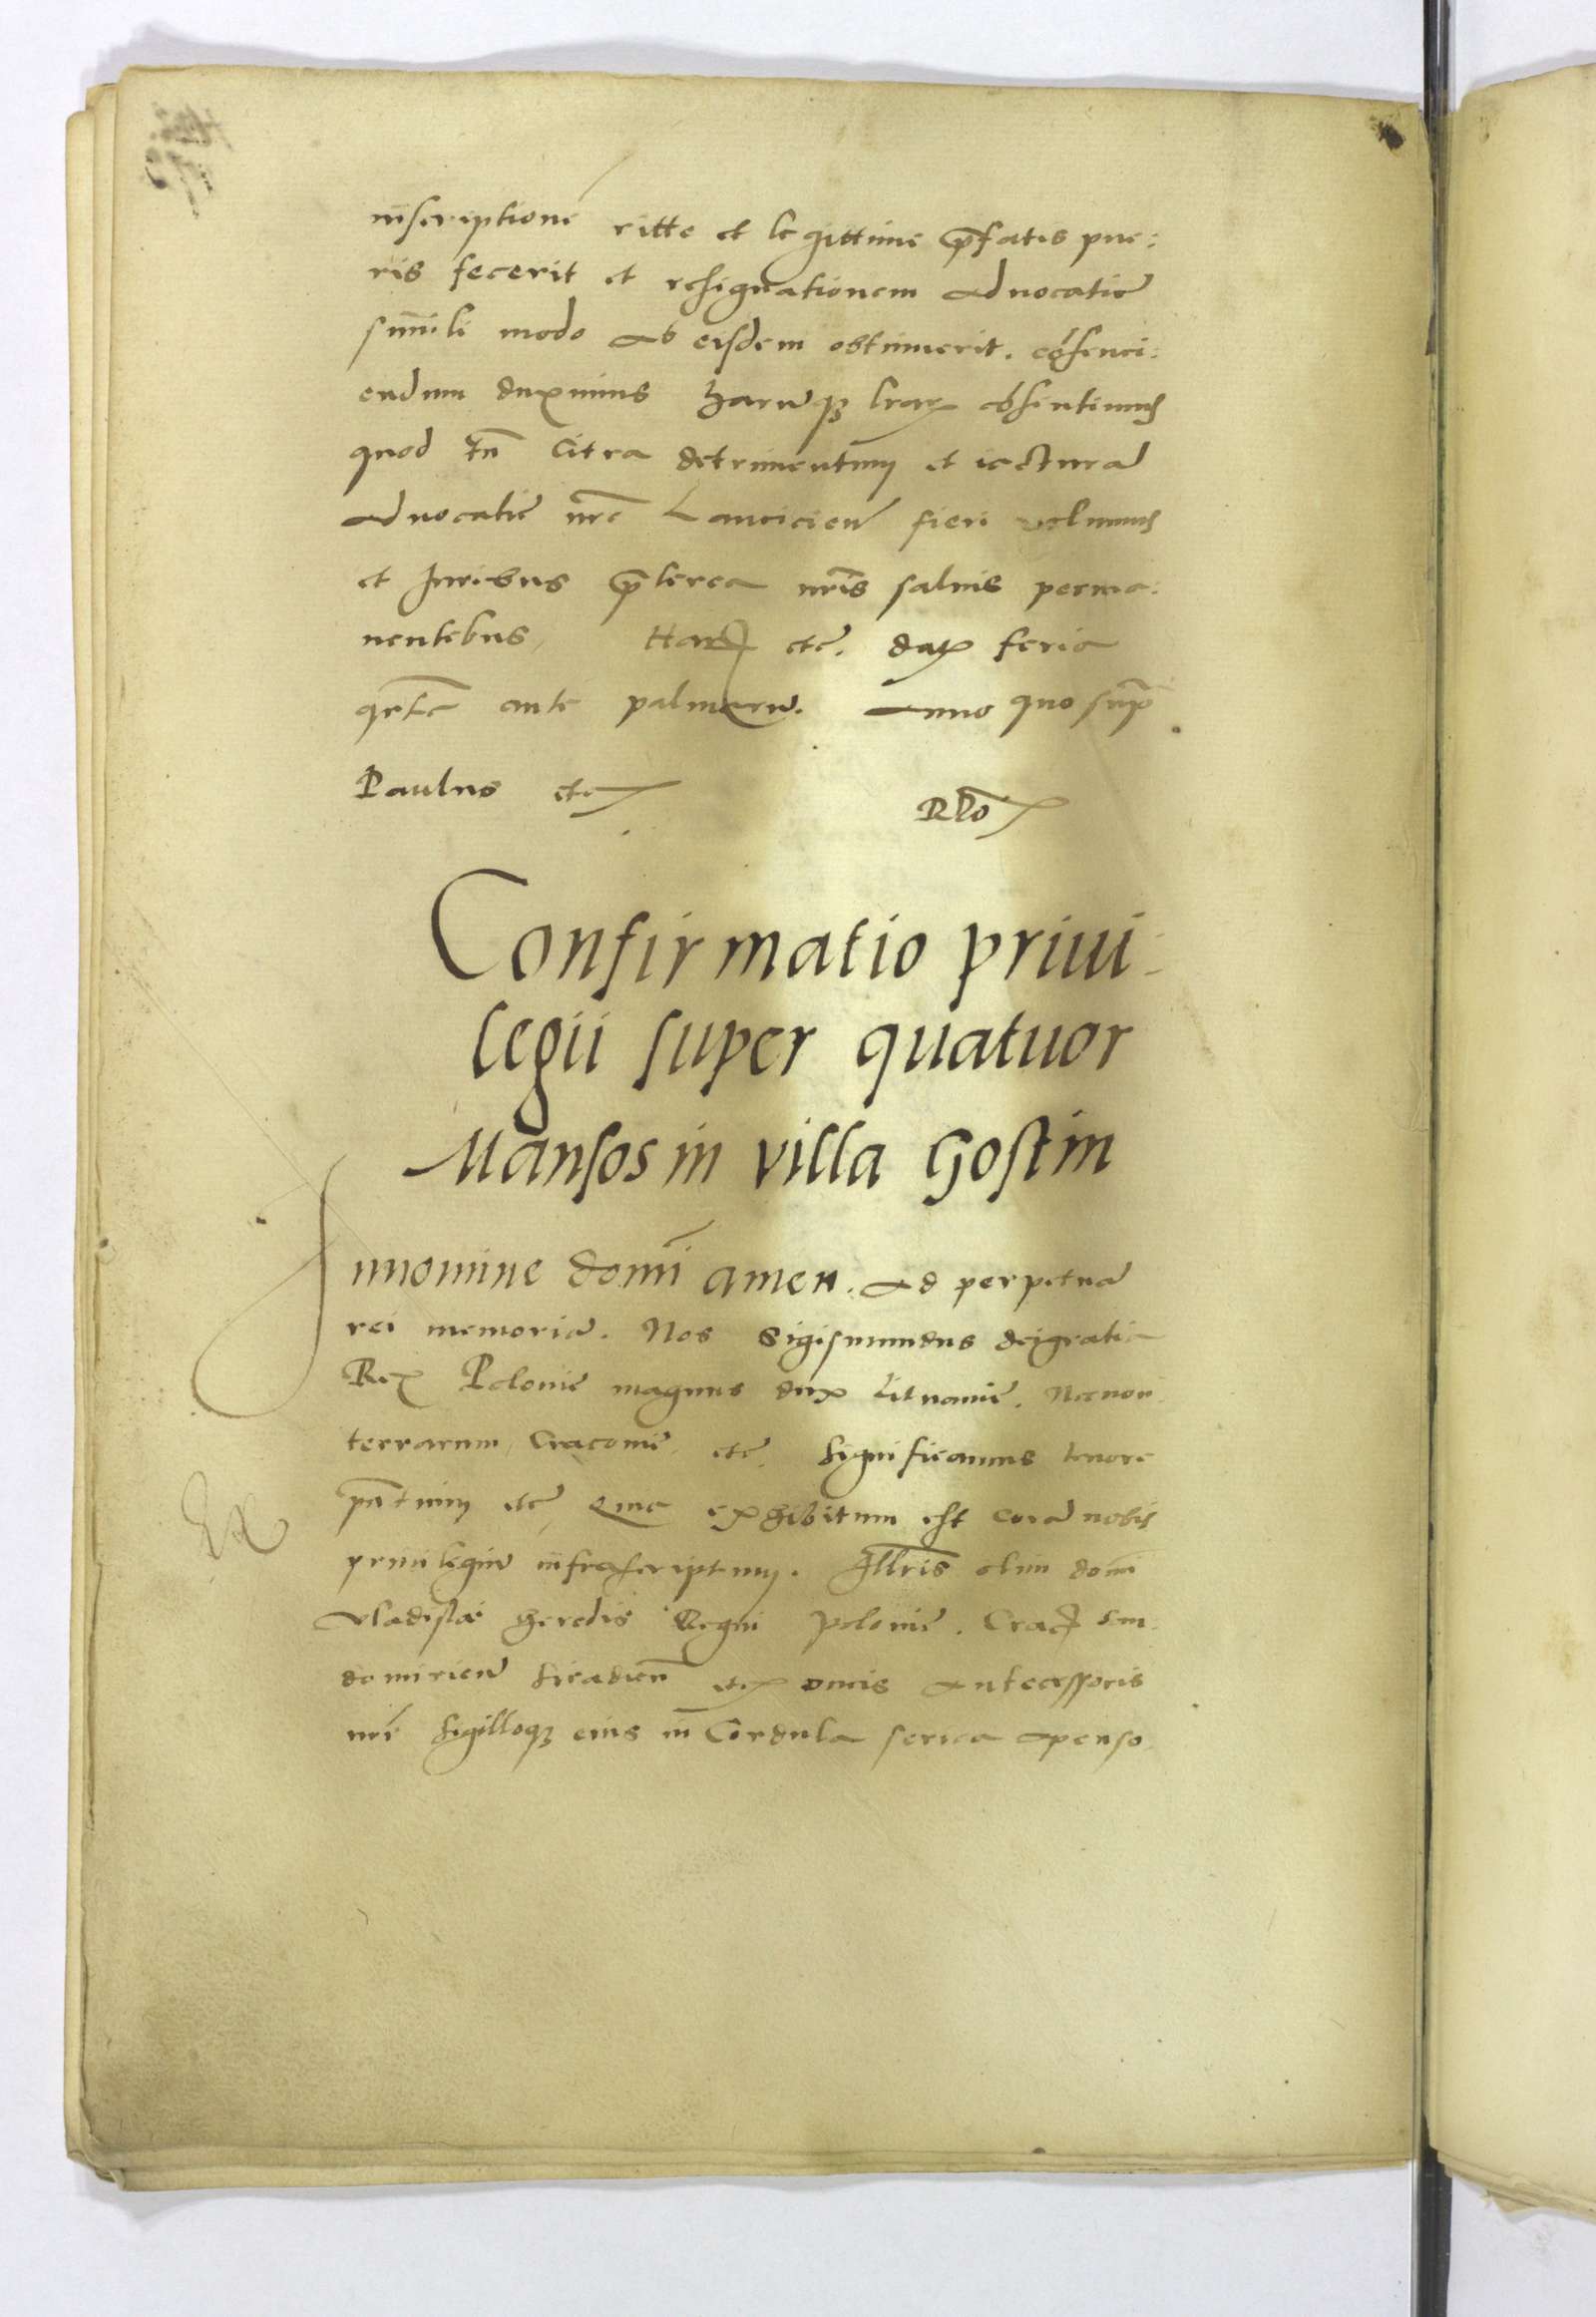 inscriptionē ritte et legittime p̄fatis pue:
ris fecerit et resignationem aduocatie
simili modo ab eisdem obtinuerit. cōsenci:
endum duximus harūqꝫ lraꝝ cōsentimus
quod tn̄ citra detrimentum et iacturā
aduocatie nr̄e Lancicien̄ fieri volumus
et Juribus p̄terea nr̄is saluis perma:
nentibus, Harꝝ etc̄. datꝫ feria
qr̄ta ante palmarū. Anno quo sup̄
Paulus etc
Rl̄o
Confirmatio priui-
legii super quatuor
Mansos in villa Gostin
Innomine domī amen. Ad perpetuā
rei memoriā. Nos Sigismundus deigratia
Rex Polonie magnus dux Lituanie. Necnon
terrarum Cracouie etc̄. Significamus tenore
pn̄tium etc̄ Quia exhibitum est corā nobis
priuilegiū infrascriptum. Illr̄is olim domī
Vladislai heredis Regni Polonie. Crac̄ San
domirien̄ Siradien̄ etc ducis Antecessoris
nr̄i Sigilloqꝫ eius in Cordula serica apenso
Ex